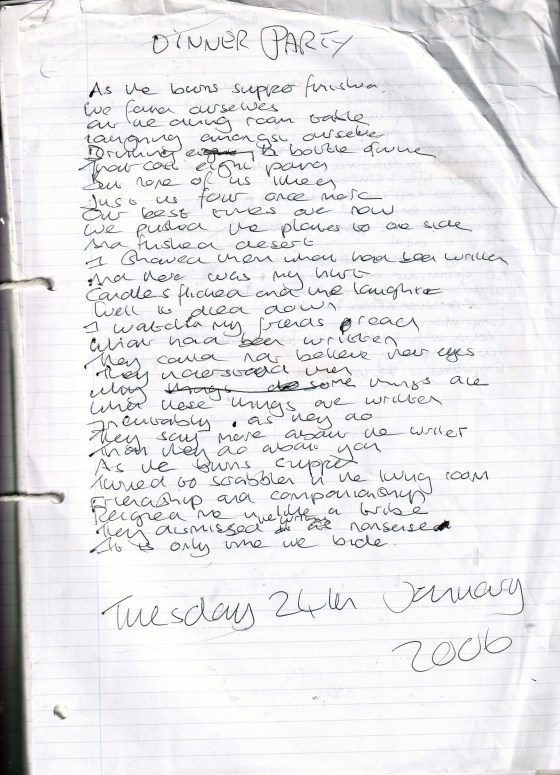 DINNER PARTY
As the burns supper finished
We found ourselves
at the dining room table
laughing amongst ourselves
Drinking a bottle of wine
That cost eight pound
But none of us
Just us four once more
Our best times are now
We pushed the plates to one side
And finished desert
I showed them what had been written
And here was my hurt
Candles flicked and the laughter
Well it died down
I watch my friends read
What had been written
They could not believe their eyes
They understood then
why some things are
what these things are written
Inevitably, as they do
They say more about the writer
Than they do about you
As the burns supper
Turned to scrabble in the living room
Friendship and companionship
Reigned me like a tribe
They dismissed the writing as nonsense
It is only time we bide.
Tuesday 24th January
2006